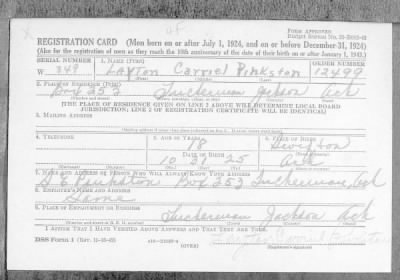 Form Approved
REGISTRATION CARD (Men born on or after July 1, 1924, and on or before December 31, 1924)
(Also for the registration of men as they reach the 18th anniversary of the date of their birth on or after January 1, 1943.)
SERIAL NUMBER 1. NAME (Print) ORDER NUMBER
W 349 Layton Carriel Pinkston 12499
2. PLACE OF RESIDENCE (Print)
Box 253 Tuckerman Jackson Ark
[THE PLACE OF RESIDENCE GIVEN ON LINE 2 ABOVE WILL DETERMINE LOCAL BOARD
JURISDICTION; LINE 2 OF REGISTRATION CERTIFICATE WILL BE IDENTICAL]
3. MAILING ADDRESS
4. TELEPHONE 5. AGE IN YEARS 6. PLACE OF BIRTH
18
DATE OF BIRTH
10 25
Ark
7. NAME AND ADDRESS OF PERSON WHO WILL ALWAYS KNOW YOUR ADDRESS
Pinkston Box 253 Tuckerman, Ark
8. EMPLOYER'S NAME AND ADDRESS
Same
9. PLACE OF EMPLOYMENT OR BUSINESS
Tuckerman Jackson Ark
I AFFIRM THAT I HAVE VERIFIED ABOVE ANSWERS AND THAT THEY ARE TRUE.
DSS Form 1 (OVER)
(Registrant's signature)